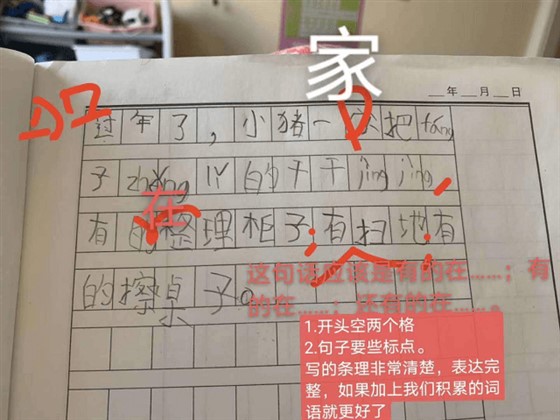 家
年 月 日
过年了，小猪一家把fáng
子的干干jìng jìng，
在
有的整理柜子；有扫地；有
的擦桌子。
这句话应该是有的在……；有
的在……；还有的在……。
1.开头空两个格
2.句子要些标点。
写的条理非常清楚，表达完
整，如果加上我们积累的词
语就更好了